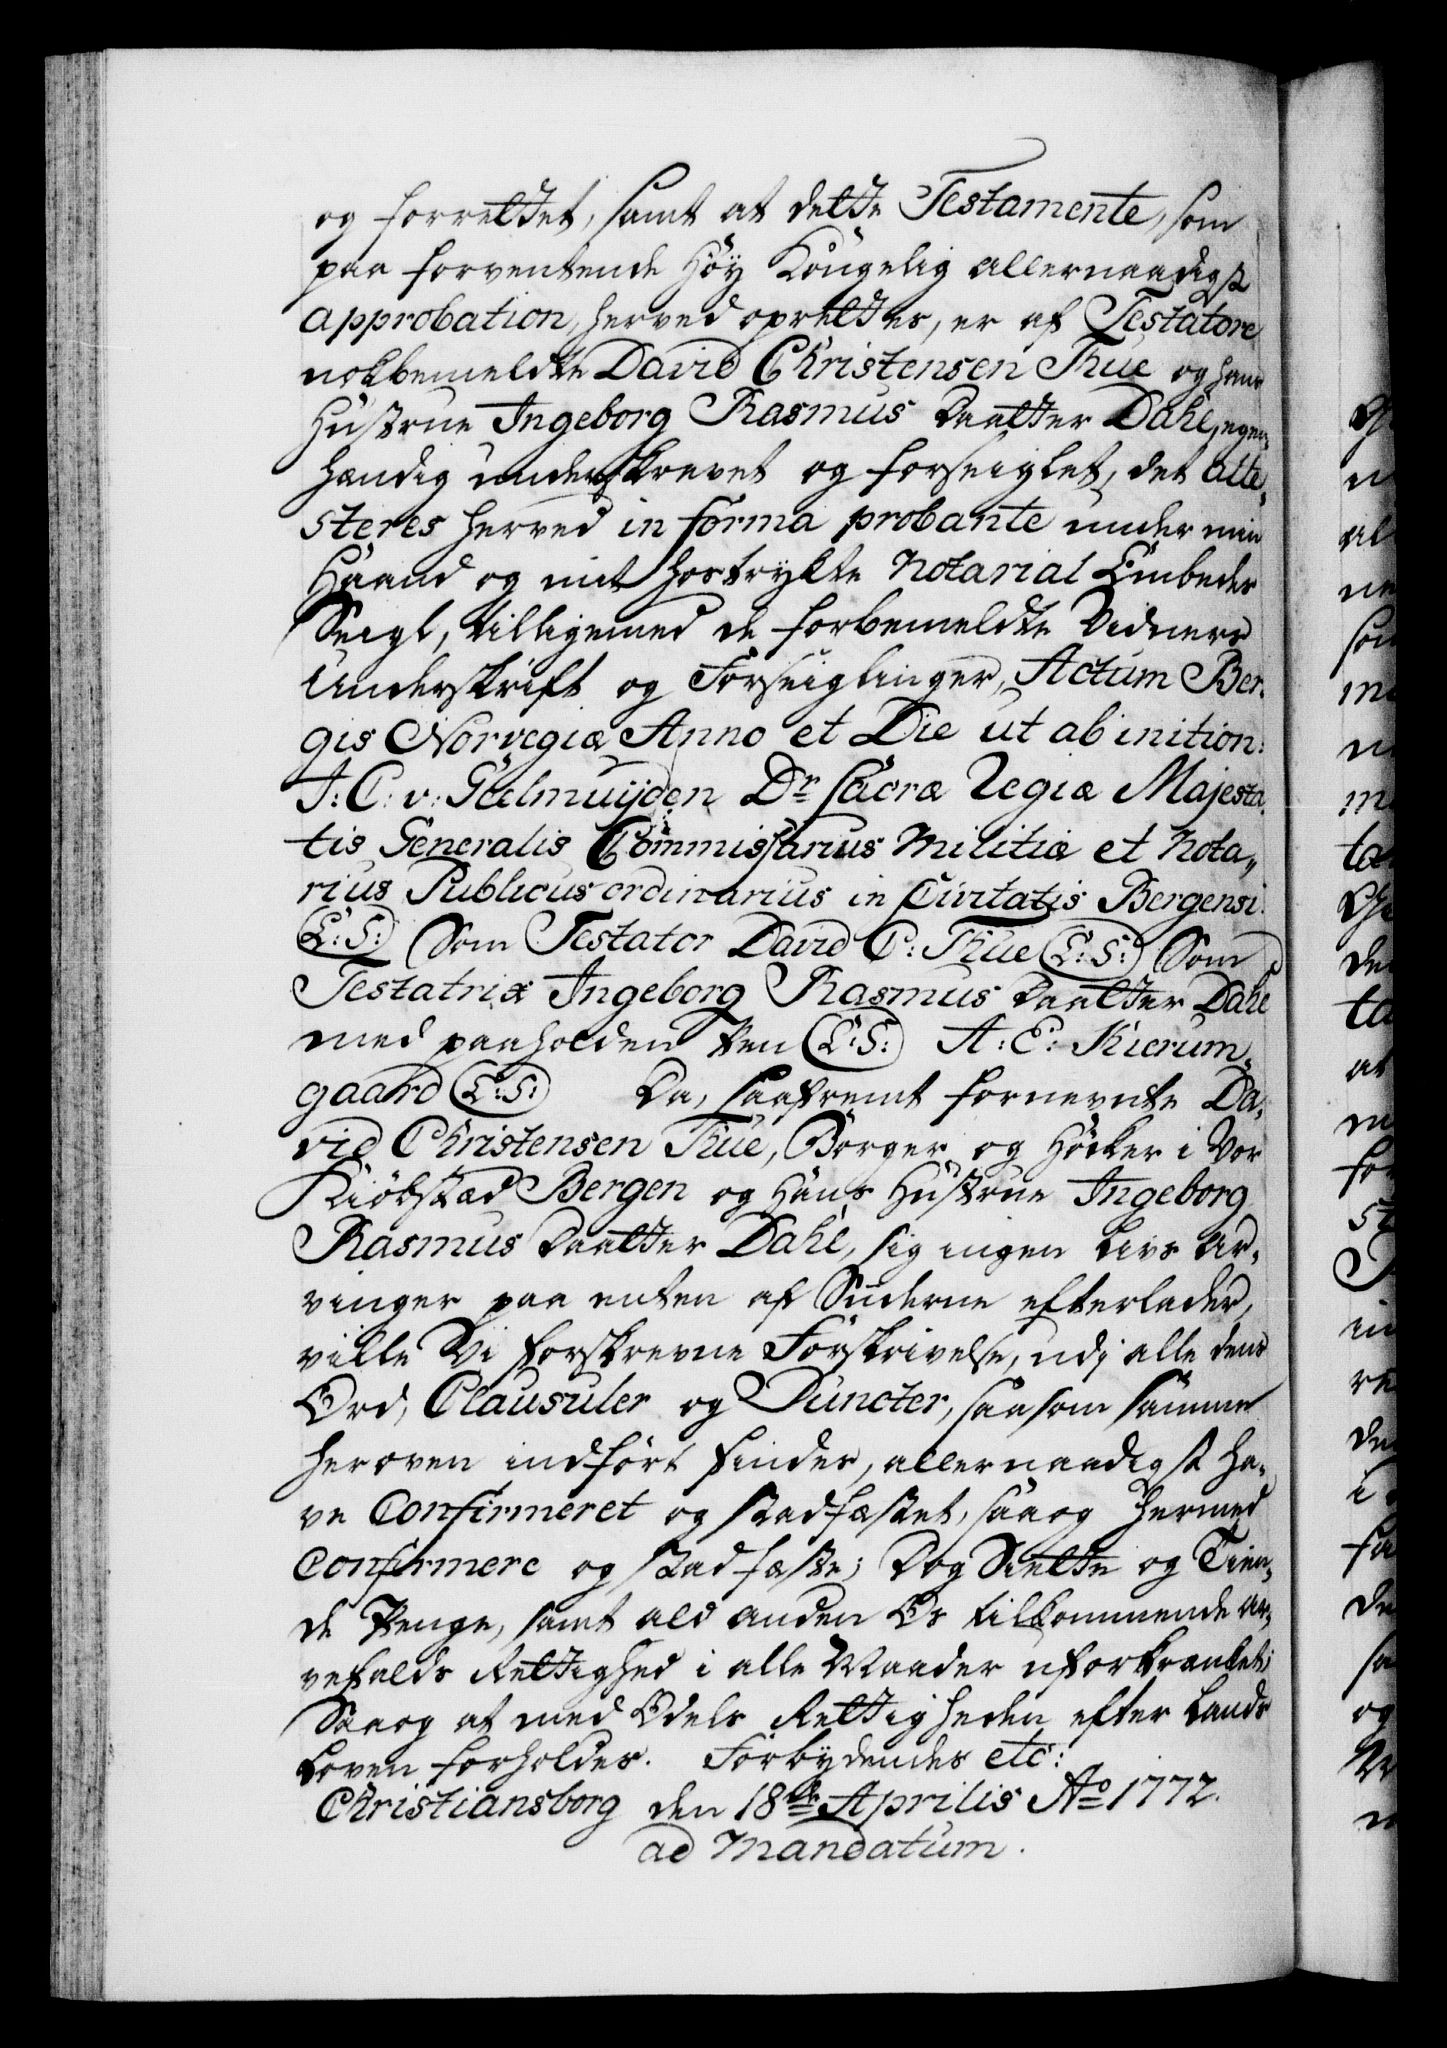 og forrettet, samt at dette Testamente, som
paa forventende Høy Kongelig allernaadigst
approbation, herved oprettes, er af Testatore
nokbemeldte David Christensen Thue og hans
Hustrue Ingeborg Rasmus Daatter Dahl, egen„
hændig underskrevet og forseiglet, det atte„
steres herved in forma probante under min
Haand og mit hostrykte Notarial Embedes
Seigl, tilligemed de forbemeldte Vidners
Underskrift og Forseiglinger, Actum Ber„
gis Norvegiæ Anno et Die ut ab inition:
J: C: v: Gelmuijden Dr. Sacræ Regiæ Majesta„
tis Generalis Commissarius Militiæ et Nota„
rius Publicus ordinarius in Civitatis Bergensi.
(L: S:) Som Testator David C: Thue (L: S:) Som
Testatrix Ingeborg Rasmus Daatter Dahl
med paaholden Pen (L: S:) A: E: Kierum„
gaard (L: S:) Da, saafremt fornevnte Da„
vid Christensen Thue, Borger og Høcker i Vor
Kiøbstæd Bergen og Hans Hustrue Ingeborg
Rasmus Daatter Dahl, sig ingen Livs Ar„
vinger paa enten af Siiderne efterlader,
ville Vi forskrevne Forskrivelse, udj alle dens
Ord, Clausuler og Puncter, saasom samme
heroven indført findes, allernaadigst ha„
ve Confirmeret og stadfæstet, saa og hermed
Confirmere og stadfæste; Dog Siette og Tien„
de Penge, samt ald anden Os tilkommende Ar„
vefalds Rettighed i alle Maader uforkrænket;
Saa og at med Odels Rettigheden efter Lands
Loven forholdes. Forbydendes etc:
Christiansborg den 18de Aprilis Ao 1772.
ad Mandatum.